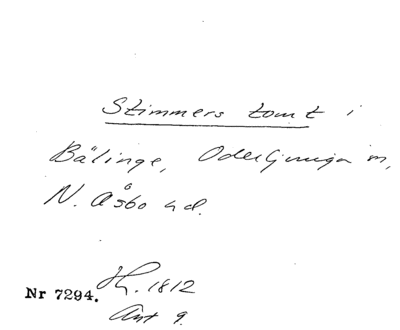 Stimmers tomt i
Bälinge, Oderljunga sn,
N. Åsbo hd.
Nr 7294. 1812
Ant 9.